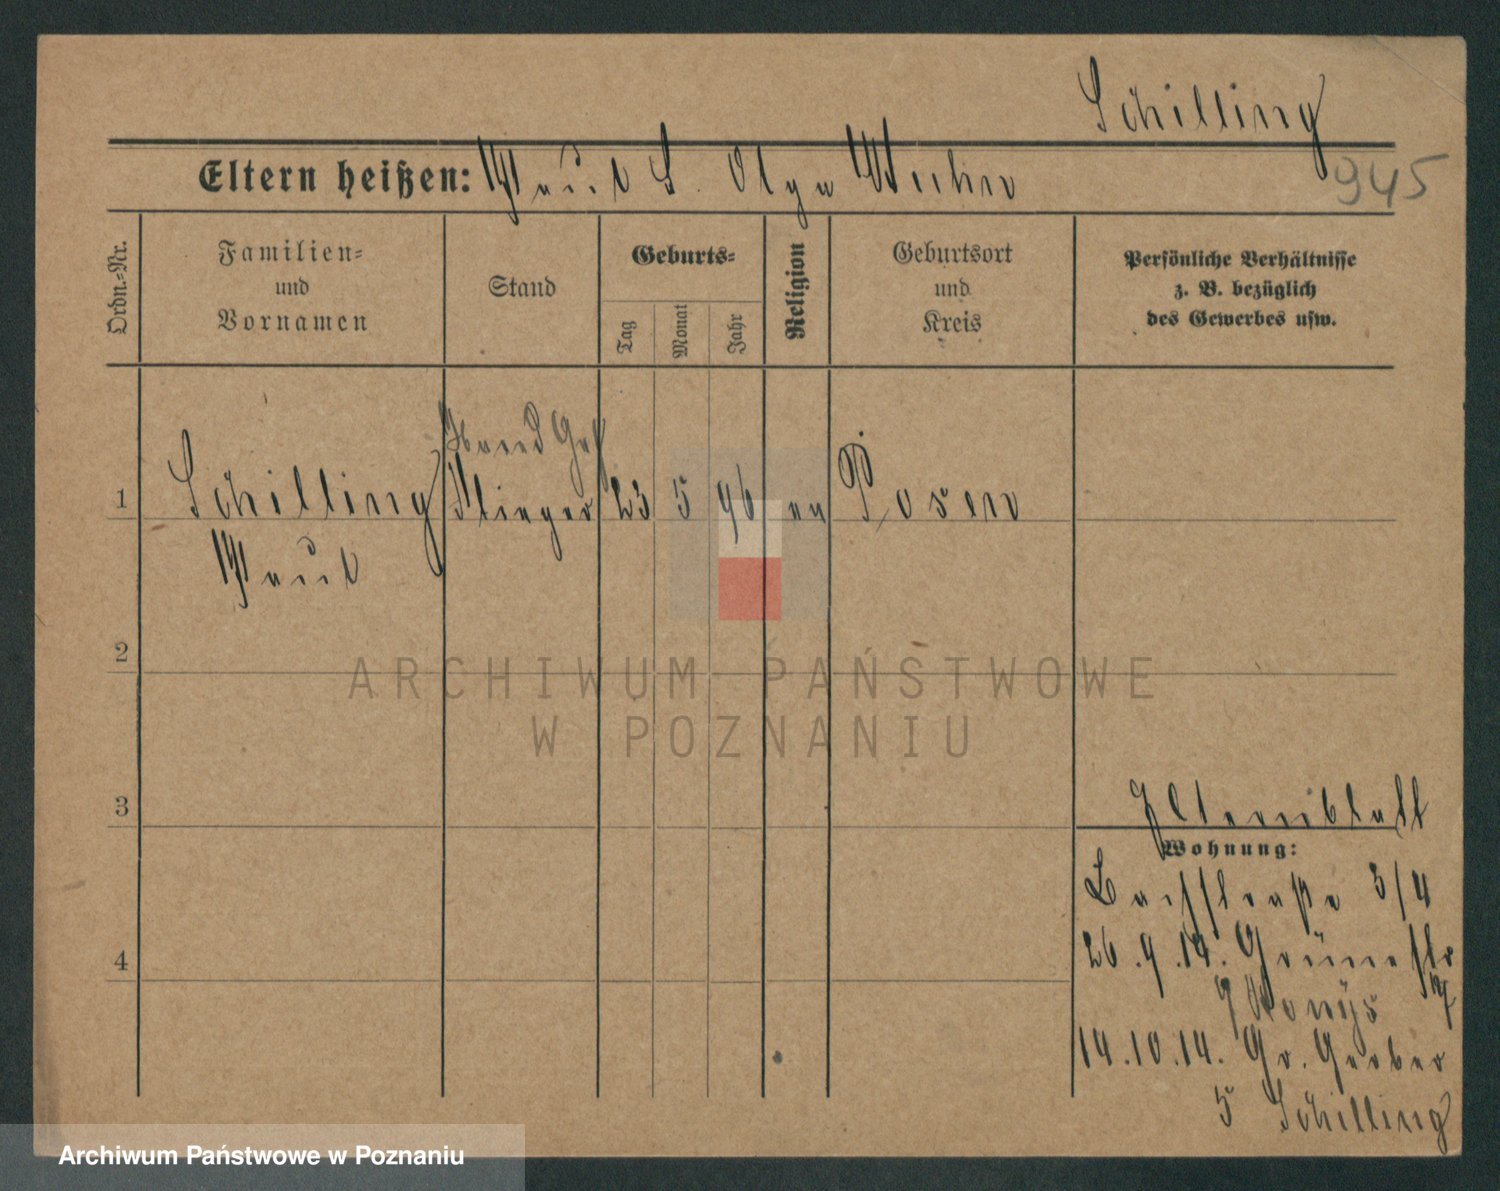 Schilling
Eltern heißen: Paul S. Olga
945
Ordn.-Nr.
Familien-
und
Vornamen
Stand
Geburts-
Tag
Monat
Jahr
Religion
Geburtsort
und
Kreis
Persönliche Verhältnisse
z. B. bezüglich
des Gewerbes usw.
1
Schilling
Paul
23
5
96
ev
Posen
2
3
4
ARCHIWUM PAŃSTWOWE
W POZNANIU
Elternblatt
Wohnung:
Bachstraße 3/4
26.9.14. Grünestr
14.10.14. Gr. Gerber
5 Schilling
Archiwum Państwowe w Poznaniu